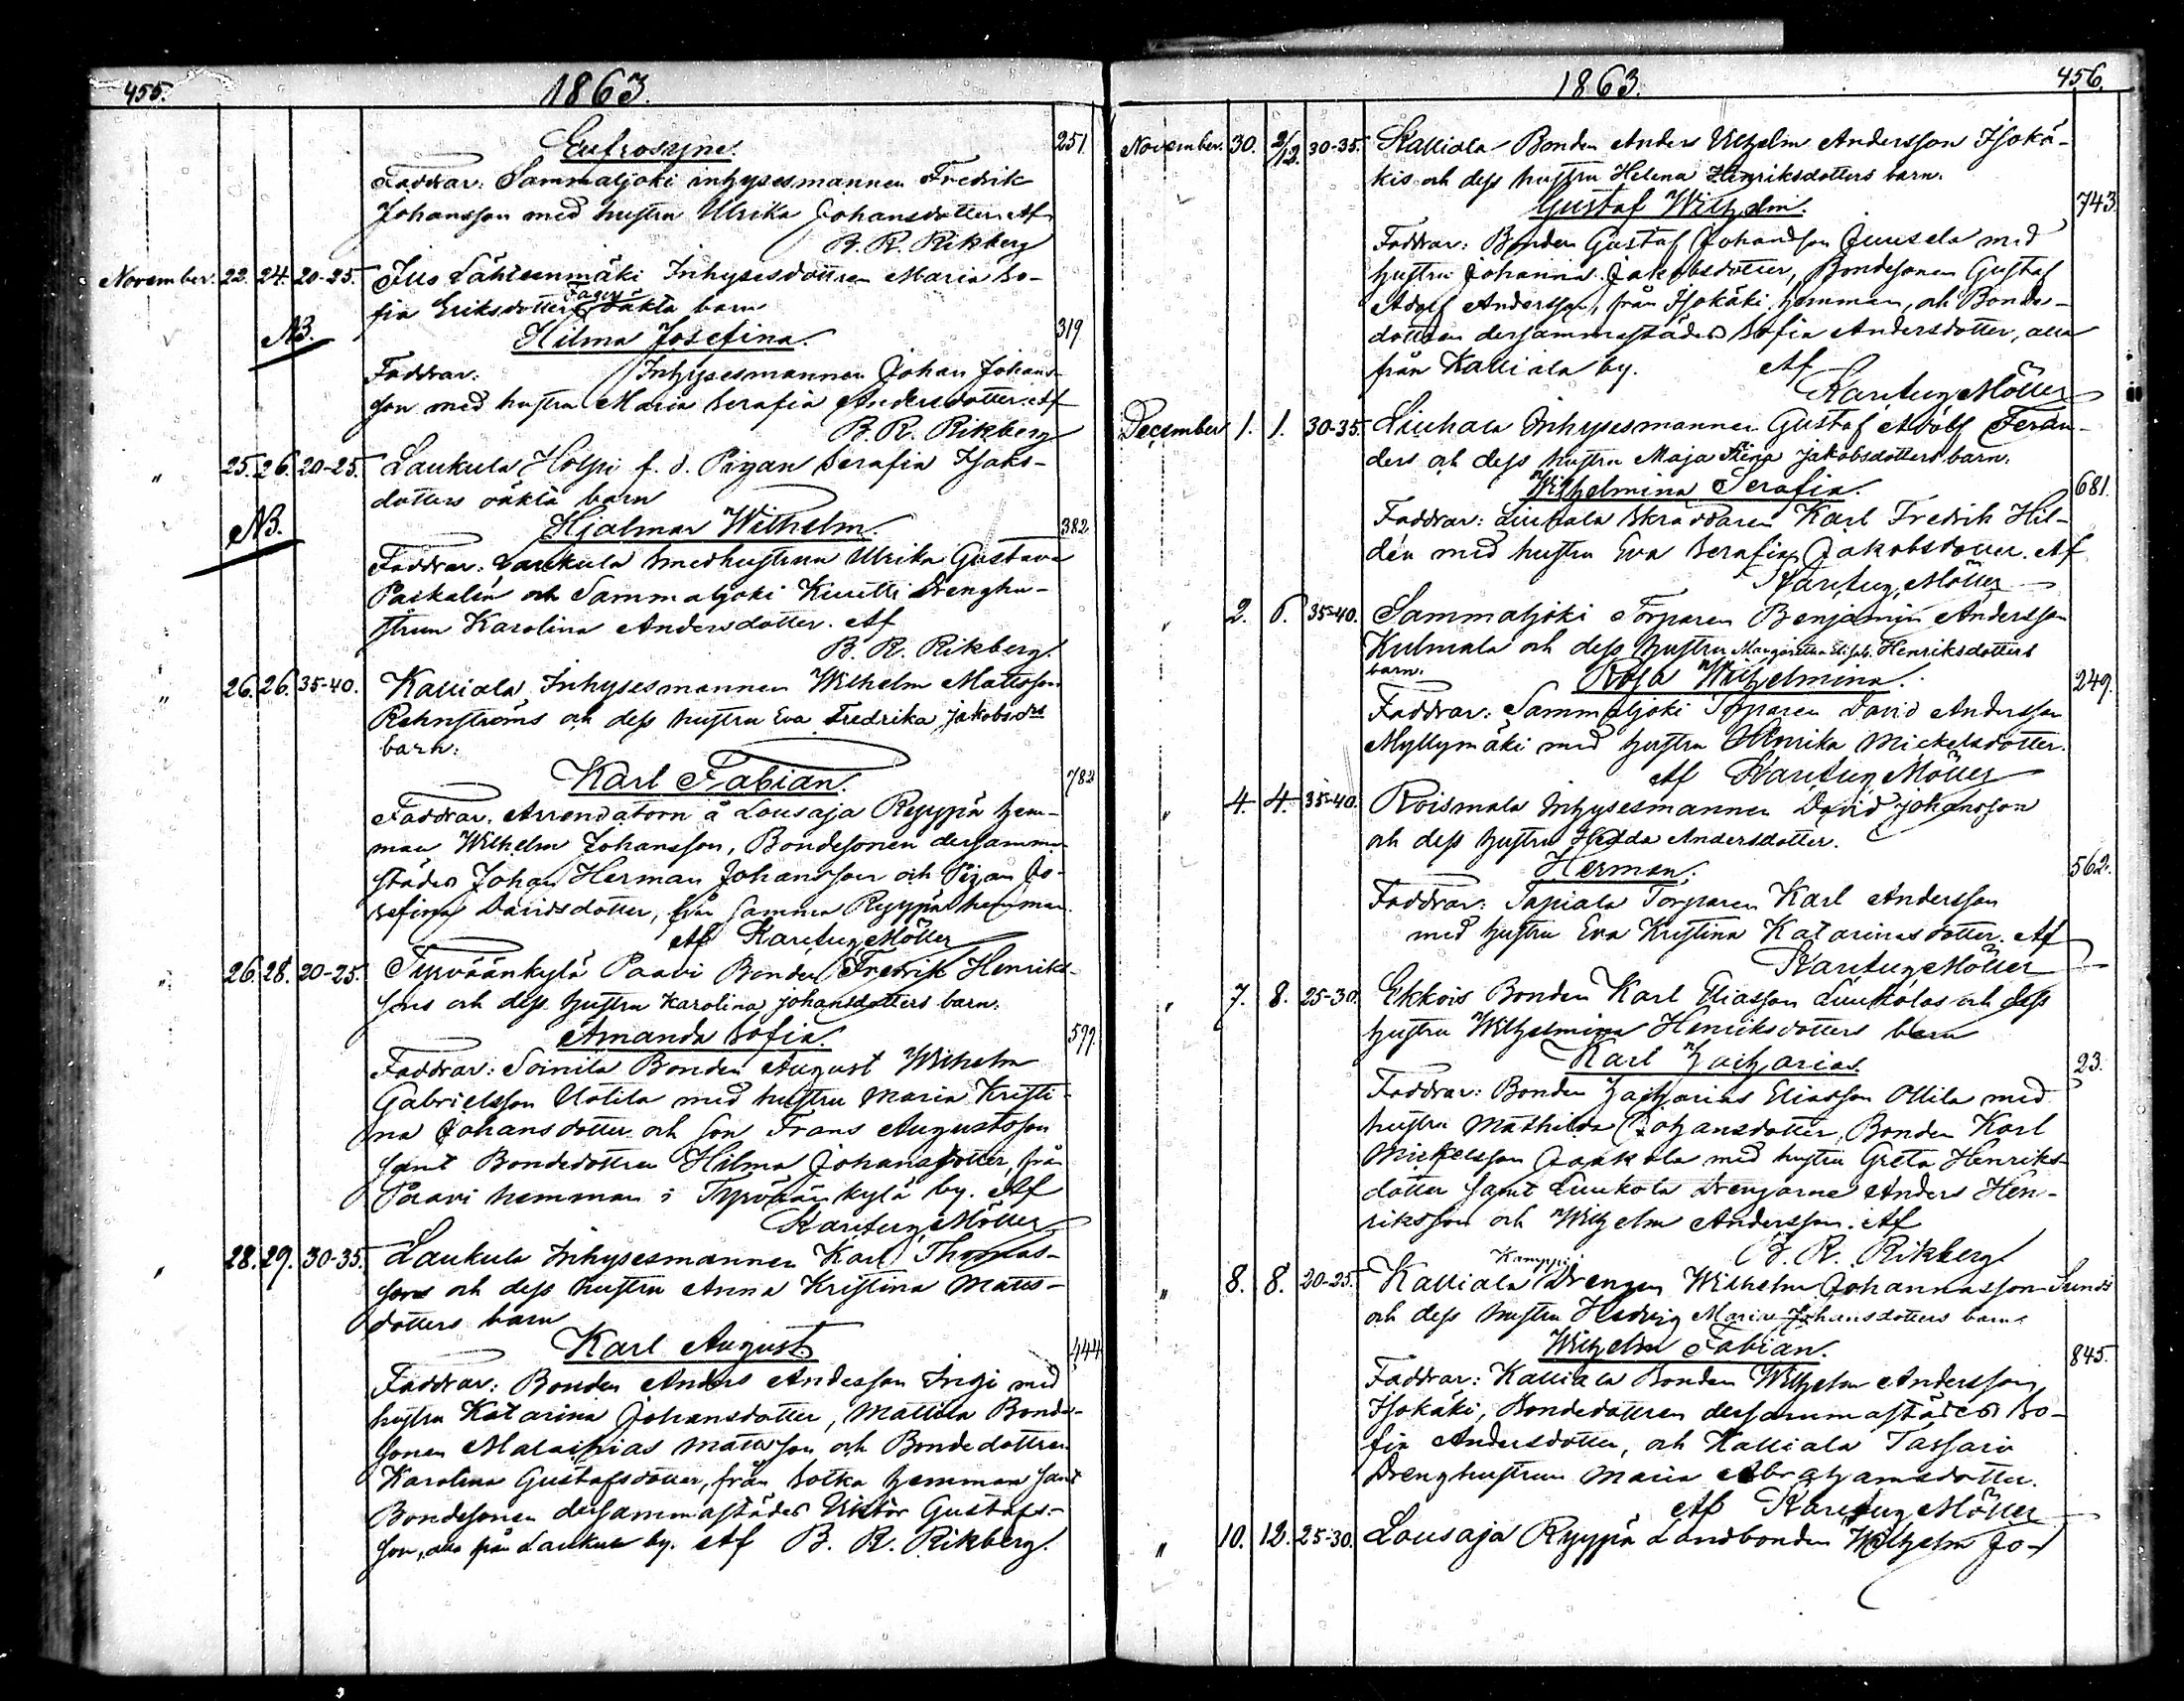 455.
1863.
Eufrosyne.
251.
Faddrar: Sammaljoki inhysesmannen Fredrik
Johansson med hustru Ulrika Johansdotter. Af
B. R. Rikberg
November. 22. 24. 20-25. Illo Lähteenmäki Inhysesdottren Maria So-
fia Eriksdotter Fagers oäkta barn
NB.
Hilma Josefina.
319
Faddrar: Inhysesmannen Johan Johans-
son med hustru Maria Serafia Andersdotter. Af
B. R. Rikberg
" 25. 26. 20-25. Laukula Holpi f. d. Pigan Serafia Isaks-
dotters oäkta barn
NB.
Hjalmar Wilhelm.
382
Faddrar: Laukula Smedhustrun Ulrika Gustava
Paskalin och Sammaljoki Knuutti Drenghu-
strun Karolina Andersdotter. Af
B. R. Rikberg.
" 26. 26. 35-40. Kalliala Inhysesmannen Wilhelm Mattsson
Rehnströms och dess hustru Eva Fredrika Jakobsdrs
barn:
Karl Fabian.
782
Faddrar. Arrendatorn å Lousaja Ryyppä hem-
man Wilhelm Johansson, Bondesonen dersamma-
städes Johan Herman Johansson och Pigan Jo-
sefina Davidsdotter, från samma Ryyppä hemman.
Af Karl Aug. Möller
" 26. 28. 20-25. Tyrväänkylä Paavi Bonden Fredrik Henriks-
sons och dess hustru Karolina Johansdotters barn.
Amanda Sofia.
599.
Faddrar: Soinila Bonden August Wilhelm
Gabrielsson Uotila med hustru Maria Kristi-
na Johansdotter och son Frans Augustsson
samt Bondedottren Hilma Johansdotter, från
Paavi hemman i Tyrväänkylä by. Af
Karl Aug. Möller
" 28. 29. 30-35. Laukula Inhysesmannen Karl Thomas-
sons och dess hustru Anna Kristina Matts-
dotters barn
Karl August.
444
Faddrar: Bonden Anders Andersson Ingi med
hustru Katarina Johansdotter, Mattila Bonde-
sonen Malachias Mattsson och Bondedottren
Karolina Gustafsdotter, från Sotka hemman samt
Bondesonen dersammastädes Viktor Gustafs-
son, alla från Laukula by. Af B. R. Rikberg.
1863.
456.
November. 30. 2/12. 30-35. Kalliala Bonden Anders Wilhelm Andersson Isokä-
kis och dess hustru Helena Henriksdotters barn.
Gustaf Wilhelm.
743.
Faddrar: Bonden Gustaf Johansson Juusela med
hustru Johanna Jakobsdotter, Bondesonen Gustaf
Adolf Andersson, från Isokäki hemman, och Bonde-
dottren dersammastädes Sofia Andersdotter, alla
från Kalliala by. Af
Karl Aug. Möller
December 1. 1. 30-35. Liuhala Inhysesmannen Gustaf Adolf
och dess hustru Maja Jakobsdotters barn.
Wilhelmina Serafia.
681.
Faddrar: Liuhala Skräddaren Karl Fredrik Hil-
dén med hustru Eva Serafia Jakobsdotter. Af
Karl Aug. Möller
" 2. 6. 35-40. Sammaljoki Torparen Benjamin Andersson
Kulmala och dess hustru Margaretha Elisab. Henriksdotters
barn.
Rosa Wilhelmina.
249.
Faddrar: Sammaljoki Torparen David Andersson
Myllymäki med hustru Henrika Mickelsdotter.
Af Karl Aug. Möller
" 4. 4. 35-40. Roismala Inhysesmannen David Johansson
och dess hustru Hedda Andersdotter.
Herman.
562.
Faddrar: Tapiala Torparen Karl Andersson
med hustru Eva Kristina Katarinasdotter. Af
Karl Aug. Möller
" 7. 8. 25-30. Ekkois Bonden Karl Eliasson Luukolas och dess
hustru Wilhelmina Henriksdotters barn
Karl Zacharias.
23.
Faddrar: Bonden Zacharias Eliasson Ollila med
hustru Mathilda Johansdotter, Bonden Karl
Mickelsson Jaakola med hustru Greta Henriks-
dotter samt Luukola Drengarne Anders Hen-
riksson och Wilhelm Andersson. Af
B. R. Rikberg
" 8. 8. 20-25. Kalliala Kamppi Drengen Wilhelm Johannasson Sunds
och dess hustru Hedvig Maria Johansdotters barn.
Wilhelm Fabian.
845.
Faddrar: Kalliala Bonden Wilhelm Andersson
Isokäki, Bondedottren dersammastädes So-
fia Andersdotter, och Kalliala Tassari
Drenghustrun Maria Abrahamsdotter.
Af Karl Aug. Möller
" 10. 12. 25-30. Lousaja Ryyppä Landbonden Wilhelm Jo-